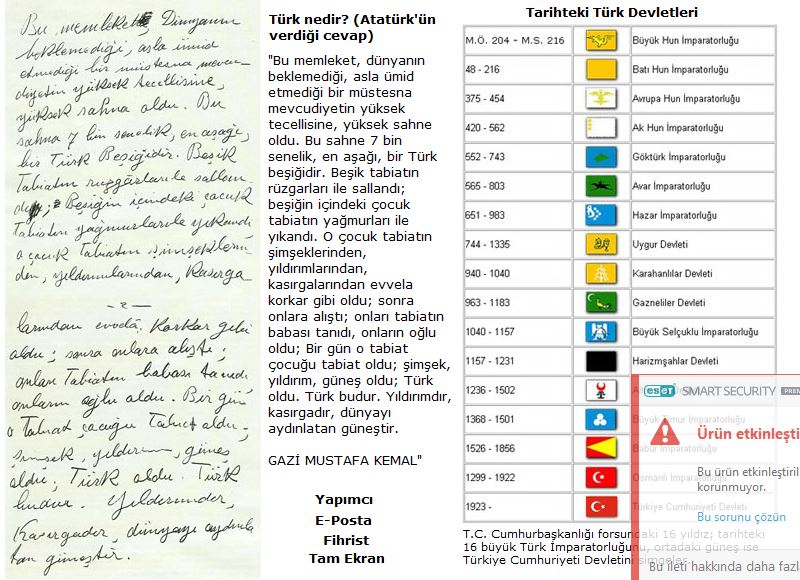 Bu memleket, Dünyanın
beklemediği, asla ümid
etmediği bir müstesna mevcu-
diyetin yüksek tecellisine,
yüksek sahna oldu. Bu
sahna 7 bin senelik, en aşağı,
bir Türk Beşiğidir. Beşik
Tabiatın rüzgârlarile sallan
dı; Beşiğin içindeki çocuk
Tabiatın yağmurlarile yıkandı,
o çocuk Tabiatın şimşeklerin-
den, yıldırımlarından, Kasırga
-2-
larından evvelâ, Korkar gibi
oldu; sonra onlara alıştı;
onları Tabiatın babası tanıdı,
onların oğlu oldu. Bir gün
o Tabiat çocuğu Tabiat oldu;
şimşek, yıldırım, güneş
oldu; Türk oldu. Türk
budur. Yıldırımdır,
Kasırgadır, dünyayı aydınla
tan güneştir.
Türk nedir? (Atatürk'ün
verdiği cevap)
"Bu memleket, dünyanın
beklemediği, asla ümid
etmediği bir müstesna
mevcudiyetin yüksek
tecellisine, yüksek sahne
oldu. Bu sahne 7 bin
senelik, en aşağı, bir Türk
beşiğidir. Beşik tabiatın
rüzgarları ile sallandı;
beşiğin içindeki çocuk
tabiatın yağmurları ile
yıkandı. O çocuk tabiatın
şimşeklerinden,
yıldırımlarından,
kasırgalarından evvela
korkar gibi oldu; sonra
onlara alıştı; onları tabiatın
babası tanıdı, onların oğlu
oldu; Bir gün o tabiat
çocuğu tabiat oldu; şimşek,
yıldırım, güneş oldu; Türk
oldu. Türk budur. Yıldırımdır,
kasırgadır, dünyayı
aydınlatan güneştir.
GAZİ MUSTAFA KEMAL"
Yapımcı
E-Posta
Fihrist
Tam Ekran
Tarihteki Türk Devletleri
M.Ö. 204 - M.S. 216 Büyük Hun İmparatorluğu
48 - 216 Batı Hun İmparatorluğu
375 - 454 Avrupa Hun İmparatorluğu
420 - 562 Ak Hun İmparatorluğu
552 - 743 Göktürk İmparatorluğu
565 - 803 Avar İmparatorluğu
651 - 983 Hazar İmparatorluğu
744 - 1335 Uygur Devleti
940 - 1040 Karahanlılar Devleti
963 - 1183 Gazneliler Devleti
1040 - 1157 Büyük Selçuklu İmparatorluğu
1157 - 1231 Harizmşahlar Devleti
1236 - 1502
1368 - 1501 Büyük Timur İmparatorluğu
1526 - 1856 Babür İmparatorluğu
1299 - 1922 Osmanlı İmparatorluğu
1923 - Türkiye Cumhuriyeti Devleti
T.C. Cumhurbaşkanlığı forsundaki 16 yıldız; tarihteki
16 büyük Türk İmparatorluğunu, ortadaki güneş ise
Türkiye Cumhuriyeti Devletini simgeler.
eset SMART SECURITY PREM
Ürün etkinleşti
Bu ürün etkinleştiril
korunmuyor.
Bu sorunu çözün
Bu ileti hakkında daha fazl